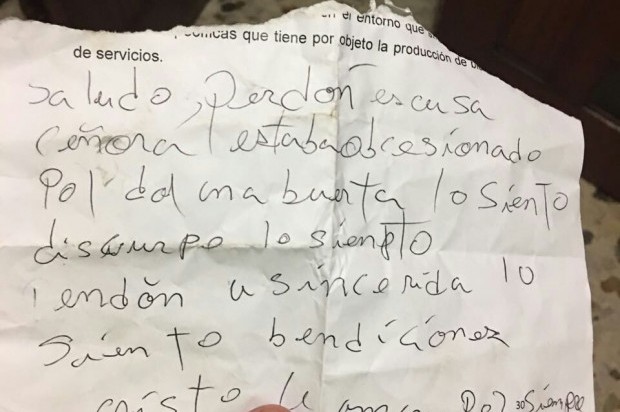 el entorno que
que tiene por objeto la producción de
de servicios.
saludo, perdón escusa
ceñora estaba obcesionado
pol dal una buerta lo siento
discurpe lo siempto
endón u sincerida lo
siento bendiciones
cristo le ama Pol Siempre